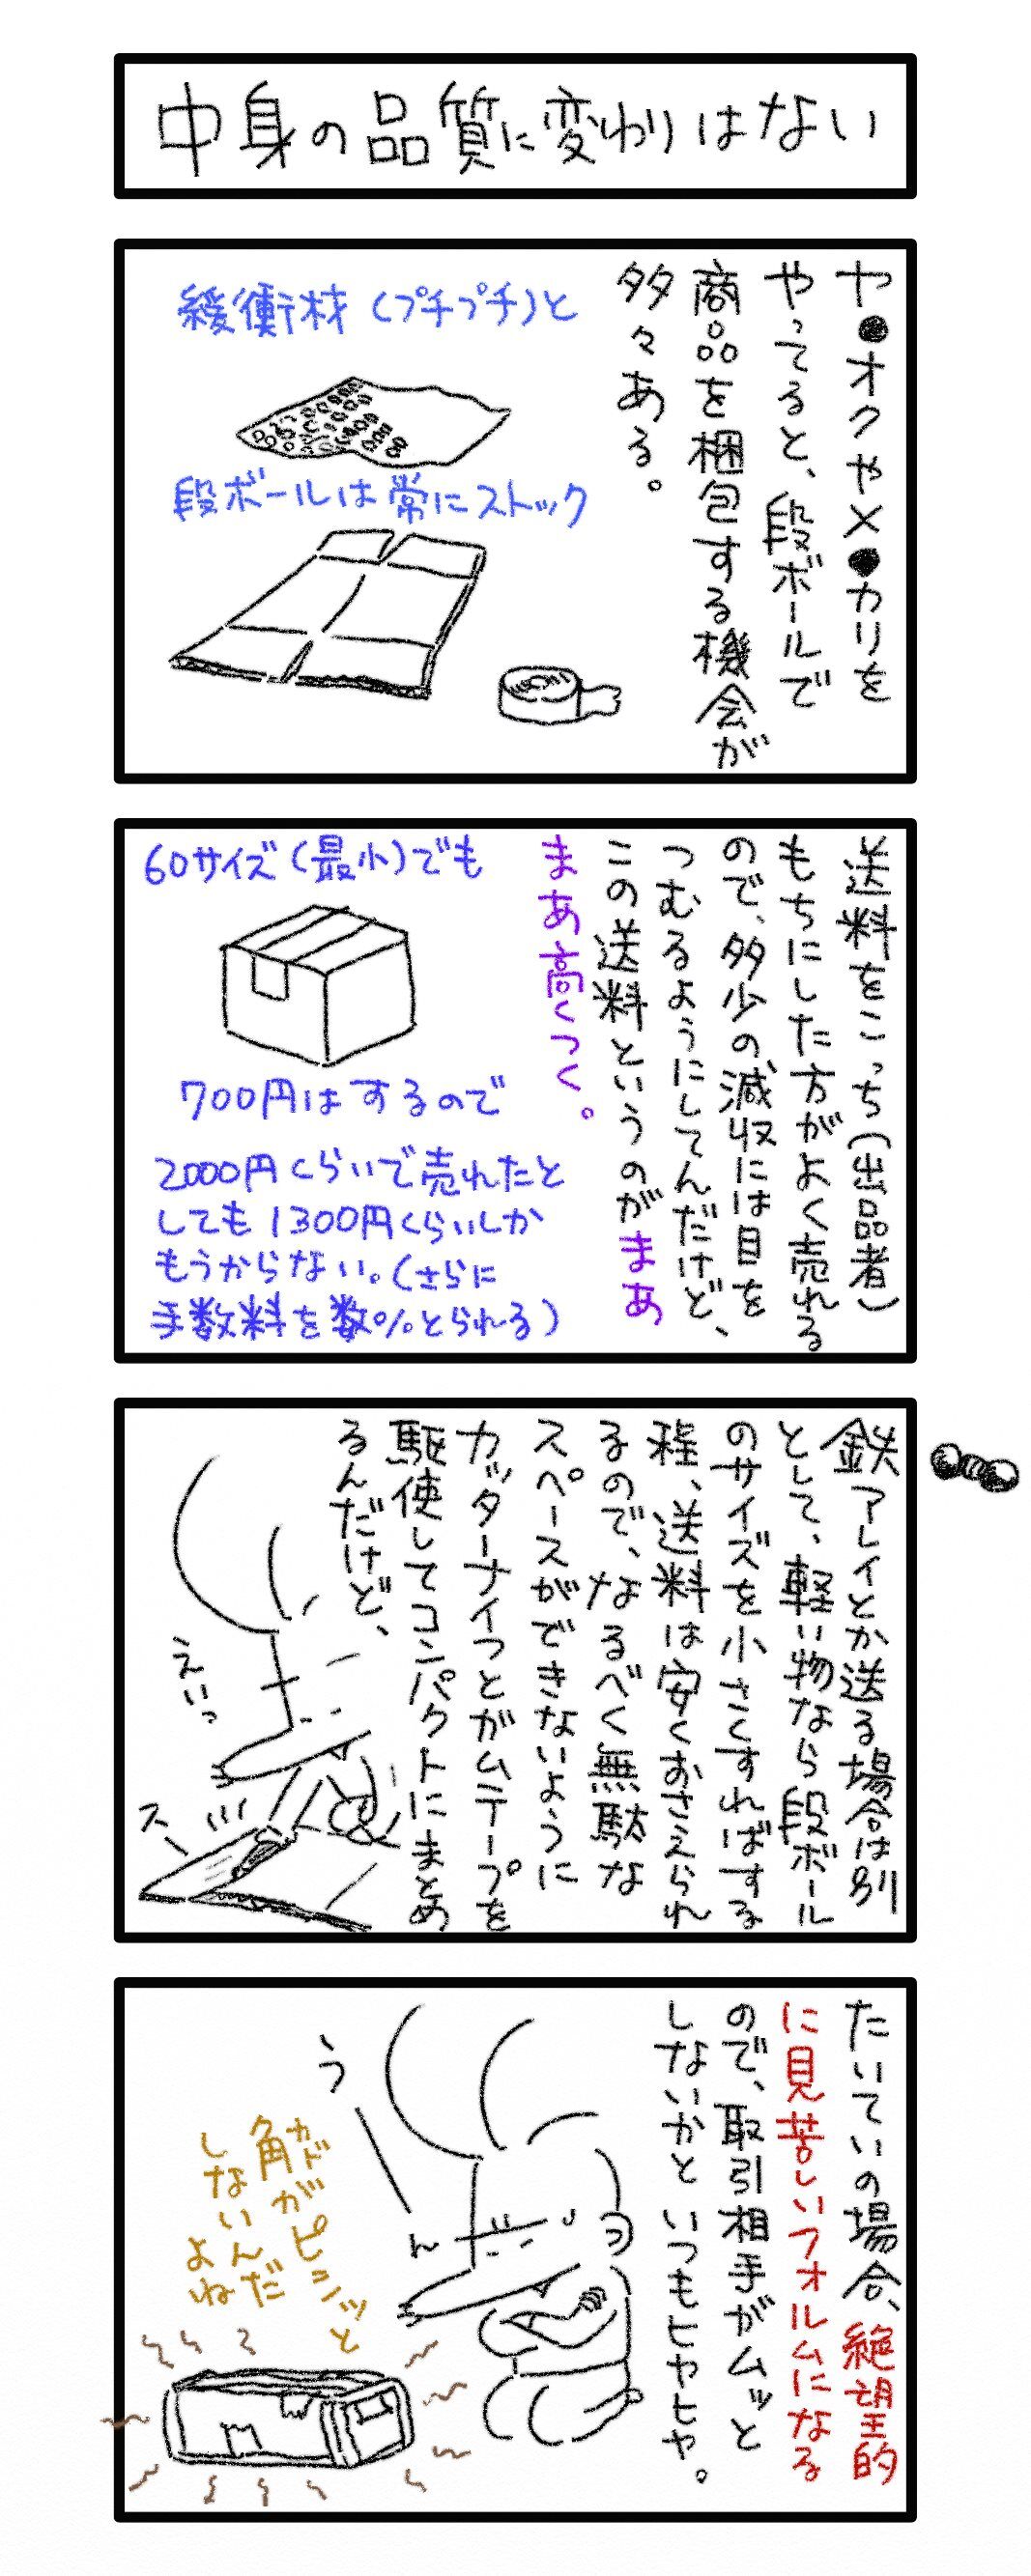 中身の品質に変わりはない
ヤ●オクやメ●カリを
やってると、段ボールで
商品を梱包する機会が
多々ある。
緩衝材(プチプチ)と
段ボールは常にストック
送料をこっち(出品者)
もちにした方がよく売れる
ので、多少の減収には目を
つむるようにしてんだけど、
この送料というのがまあ
まあ高くつく。
60サイズ(最小)でも
700円はするので
2000円くらいで売れたと
しても1300円くらいしか
もうからない。(さらに
手数料を数%とられる)
鉄アレイとか送る場合は別
として、軽い物なら段ボール
のサイズを小さくすればする
程、送料は安くおさえられ
るので、なるべく無駄な
スペースができないように
カッターナイフとガムテープを
駆使してコンパクトにまとめ
るんだけど、
えいっ
スーッ
たいていの場合、絶望的
に見苦しいフォルムになる
ので、取引相手がムッと
しないかといつもヒヤヒヤ。
う
ー
ん
角がピシッと
カド
しないんだ
よね